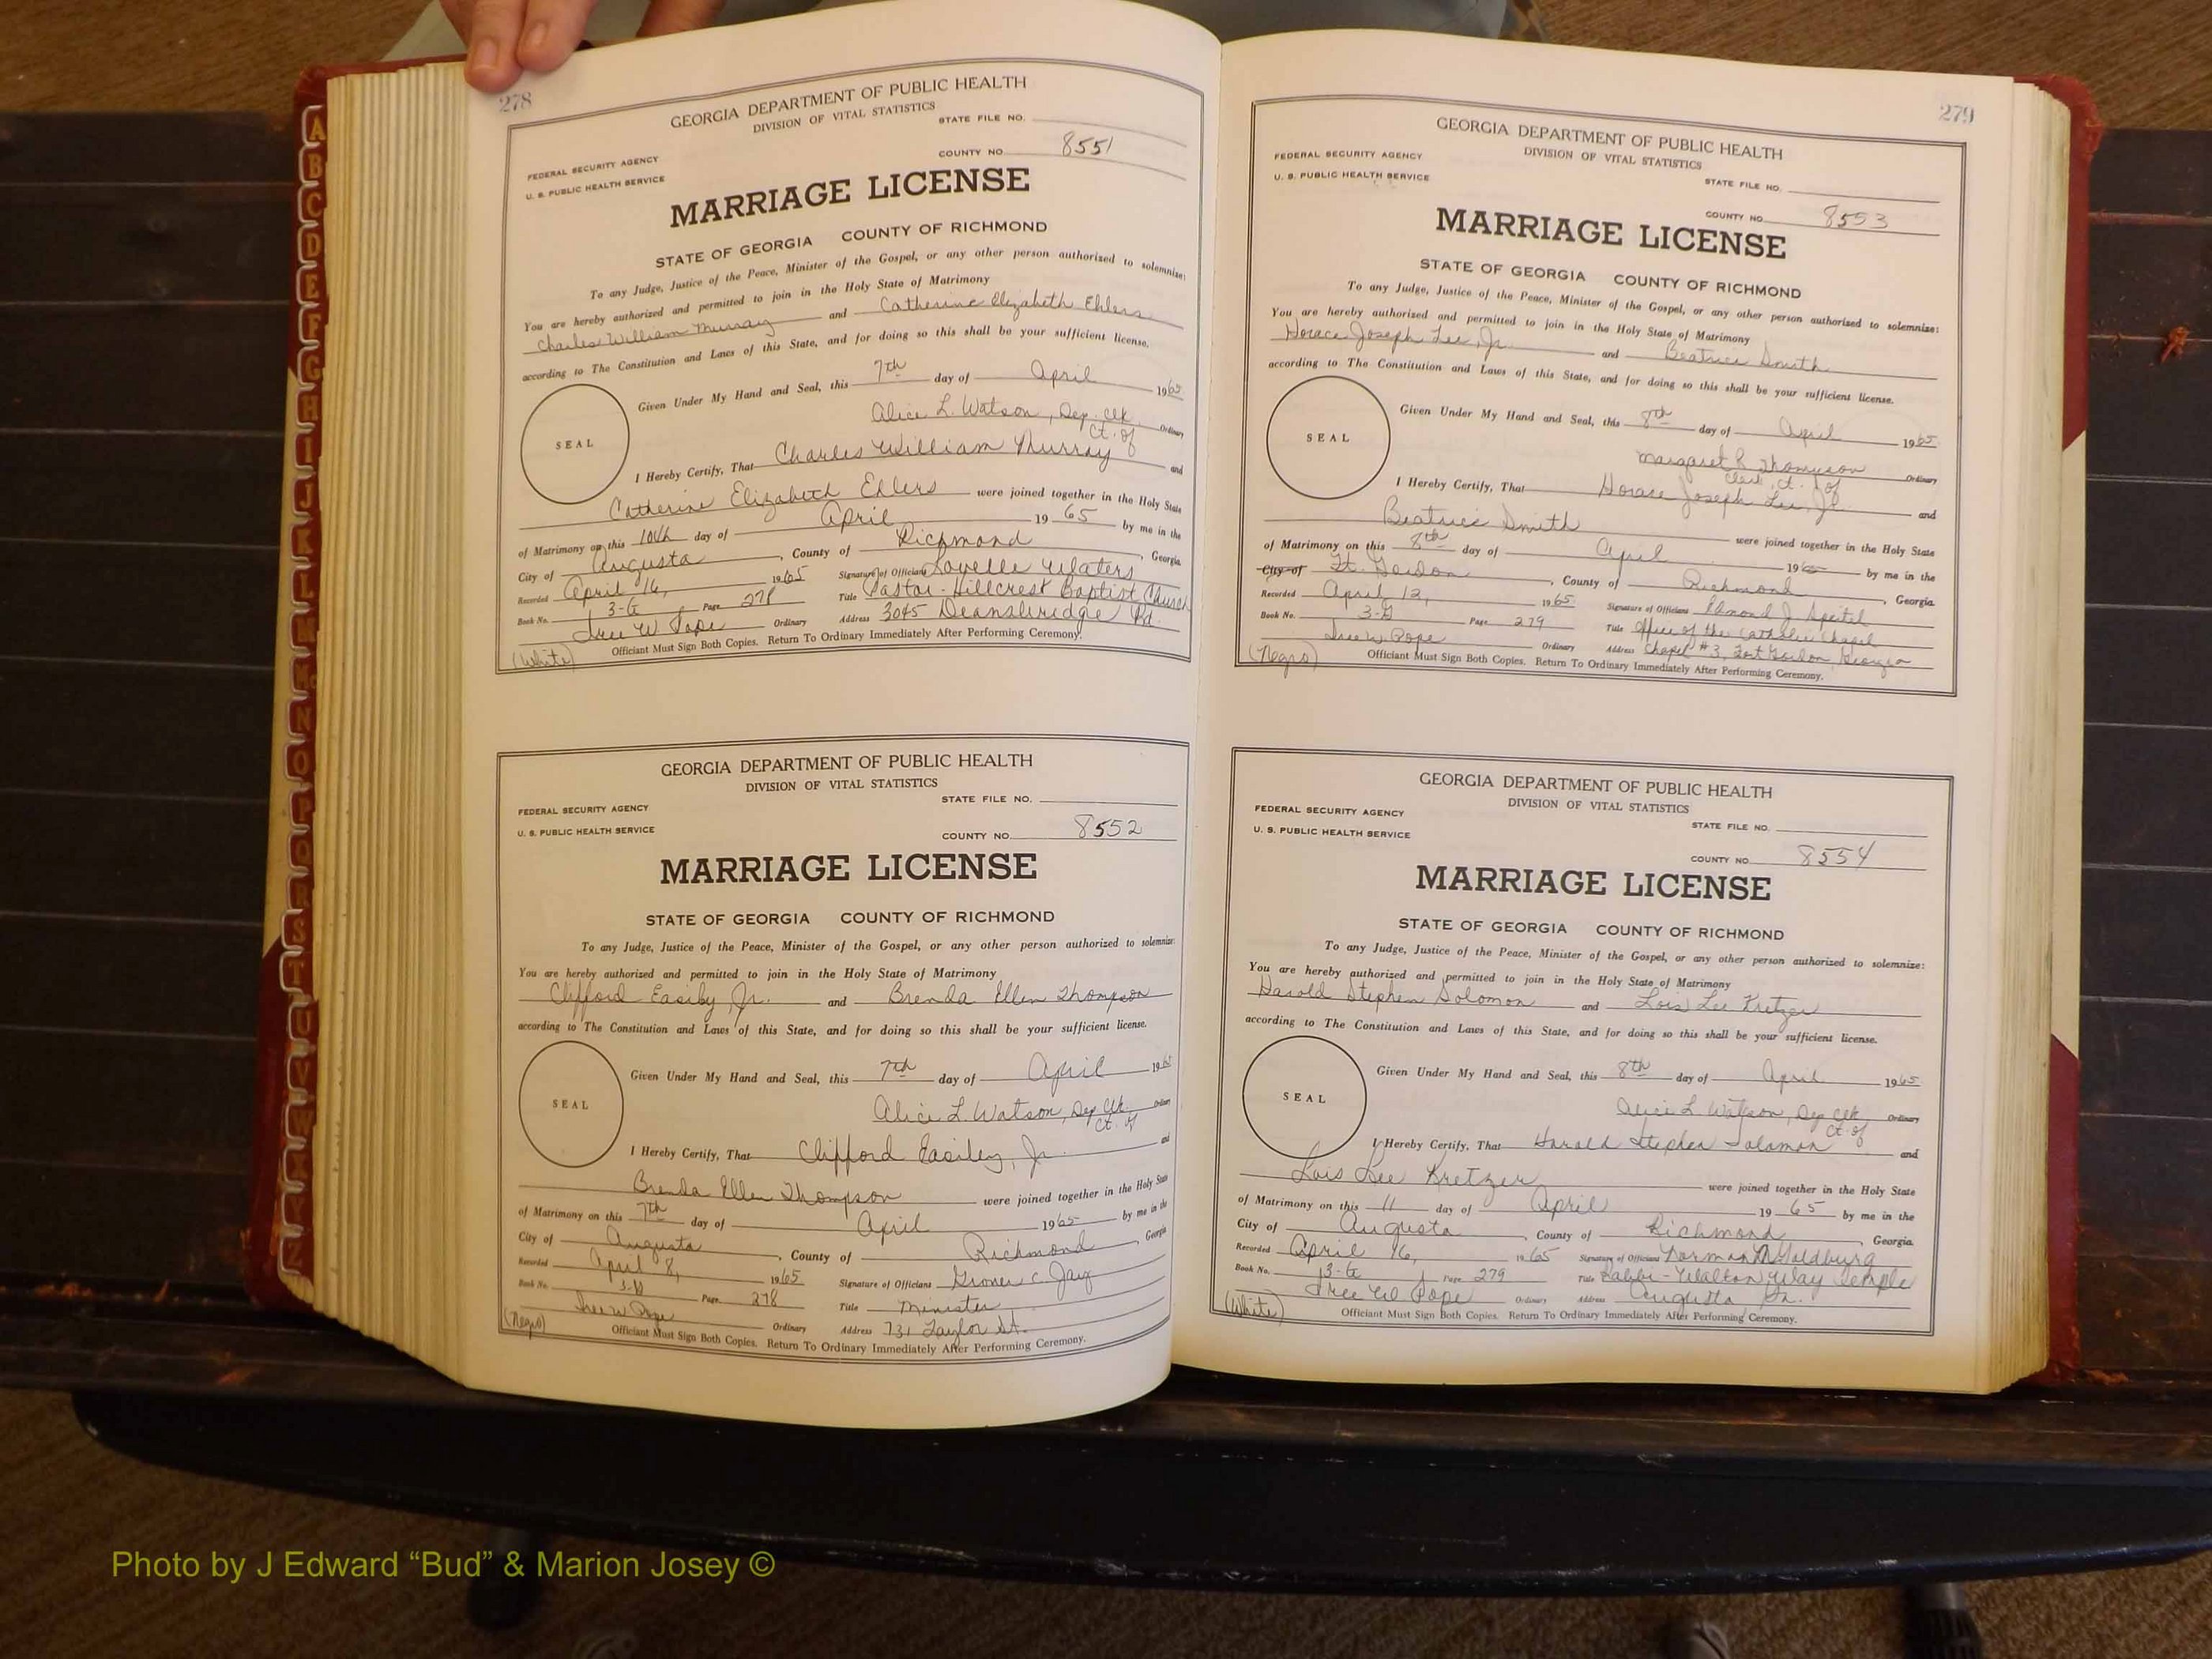 278
GEORGIA DEPARTMENT OF PUBLIC HEALTH
DIVISION OF VITAL STATISTICS
STATE FILE NO.
FEDERAL SECURITY AGENCY
COUNTY NO. 8551
U. S. PUBLIC HEALTH SERVICE
MARRIAGE LICENSE
STATE OF GEORGIA COUNTY OF RICHMOND
To any Judge, Justice of the Peace, Minister of the Gospel, or any other person authorized to solemnize:
You are hereby authorized and permitted to join in the Holy State of Matrimony
Charles William Murray and Catherine Elizabeth Ehlers
according to The Constitution and Laws of this State, and for doing so this shall be your sufficient license.
Given Under My Hand and Seal, this 7th day of April 1965
Alice L. Watson, Dep. Clk. Ordinary
Ct. of
SEAL
I Hereby Certify, That Charles William Murray and
Catherine Elizabeth Ehlers were joined together in the Holy State
of Matrimony on this 10th day of April 19 65 by me in the
City of Augusta, County of Richmond, Georgia
Recorded April 16, 1965 Signature of Officiant Lovelle Waters
Book No. 3-G Page 278 Title Pastor - Hillcrest Baptist Church
Ordinary Address 3045 Deansbridge Rd.
(White) Officiant Must Sign Both Copies. Return To Ordinary Immediately After Performing Ceremony.
GEORGIA DEPARTMENT OF PUBLIC HEALTH
DIVISION OF VITAL STATISTICS
STATE FILE NO.
FEDERAL SECURITY AGENCY
U. S. PUBLIC HEALTH SERVICE
COUNTY NO. 8552
MARRIAGE LICENSE
STATE OF GEORGIA COUNTY OF RICHMOND
To any Judge, Justice of the Peace, Minister of the Gospel, or any other person authorized to solemnize:
You are hereby authorized and permitted to join in the Holy State of Matrimony
Clifford Easiby, Jr. and Brenda Ellen Thompson
according to The Constitution and Laws of this State, and for doing so this shall be your sufficient license.
Given Under My Hand and Seal, this 7th day of April 1965
Alice L. Watson, Dep. Clk. Ordinary
Ct. of
SEAL
I Hereby Certify, That Clifford Easiley, Jr. and
Brenda Ellen Thompson were joined together in the Holy State
of Matrimony on this 7th day of April 1965 by me in the
City of Augusta, County of Richmond, Georgia
Recorded April 8, 1965 Signature of Officiant
Book No. Page 278 Title Minister
Ordinary Address 731 Taylor St.
(Negro) Officiant Must Sign Both Copies. Return To Ordinary Immediately After Performing Ceremony.
279
GEORGIA DEPARTMENT OF PUBLIC HEALTH
DIVISION OF VITAL STATISTICS
FEDERAL SECURITY AGENCY
U. S. PUBLIC HEALTH SERVICE
STATE FILE NO.
COUNTY NO. 8553
MARRIAGE LICENSE
STATE OF GEORGIA COUNTY OF RICHMOND
To any Judge, Justice of the Peace, Minister of the Gospel, or any other person authorized to solemnize:
You are hereby authorized and permitted to join in the Holy State of Matrimony
Horace Joseph Lee, Jr. and Beatrice Smith
according to The Constitution and Laws of this State, and for doing so this shall be your sufficient license.
Given Under My Hand and Seal, this 8th day of April 1965
Margaret R. Thompson Ordinary
Clerk, Ct. of
SEAL
I Hereby Certify, That Horace Joseph Lee, Jr. and
Beatrice Smith were joined together in the Holy State
of Matrimony on this 8th day of April 1965 by me in the
City of Ft. Gordon, County of Richmond, Georgia
Recorded April 12, 1965 Signature of Officiant
Book No. 3-G Page 279 Title Office of the Catholic Chapel
Ordinary Address Chapel #3, Fort Gordon, Georgia
(Negro) Officiant Must Sign Both Copies. Return To Ordinary Immediately After Performing Ceremony.
GEORGIA DEPARTMENT OF PUBLIC HEALTH
DIVISION OF VITAL STATISTICS
FEDERAL SECURITY AGENCY
U. S. PUBLIC HEALTH SERVICE
STATE FILE NO.
COUNTY NO. 8554
MARRIAGE LICENSE
STATE OF GEORGIA COUNTY OF RICHMOND
To any Judge, Justice of the Peace, Minister of the Gospel, or any other person authorized to solemnize:
You are hereby authorized and permitted to join in the Holy State of Matrimony
Harold Stephen Solomon and Lois Lee Kretzer
according to The Constitution and Laws of this State, and for doing so this shall be your sufficient license.
Given Under My Hand and Seal, this 8th day of April 1965
Alice L. Watson, Dep. Clk. Ordinary
Ct. of
SEAL
I Hereby Certify, That Harold Stephen Solomon and
Lois Lee Kretzer were joined together in the Holy State
of Matrimony on this 11 day of April 19 65 by me in the
City of Augusta, County of Richmond, Georgia
Recorded April 16, 1965 Signature of Officiant Norman M Goldburg
Book No. 3-G Page 279 Title Rabbi - Walton Way Temple
Ordinary Address Augusta Ga.
(White) Officiant Must Sign Both Copies. Return To Ordinary Immediately After Performing Ceremony.
A
B
C
D
E
F
G
H
I
J
K
L
M
Mc
N
O
P
Q
R
S
T
U
V
W
X
Y
Z
Photo by J Edward “Bud” & Marion Josey ©